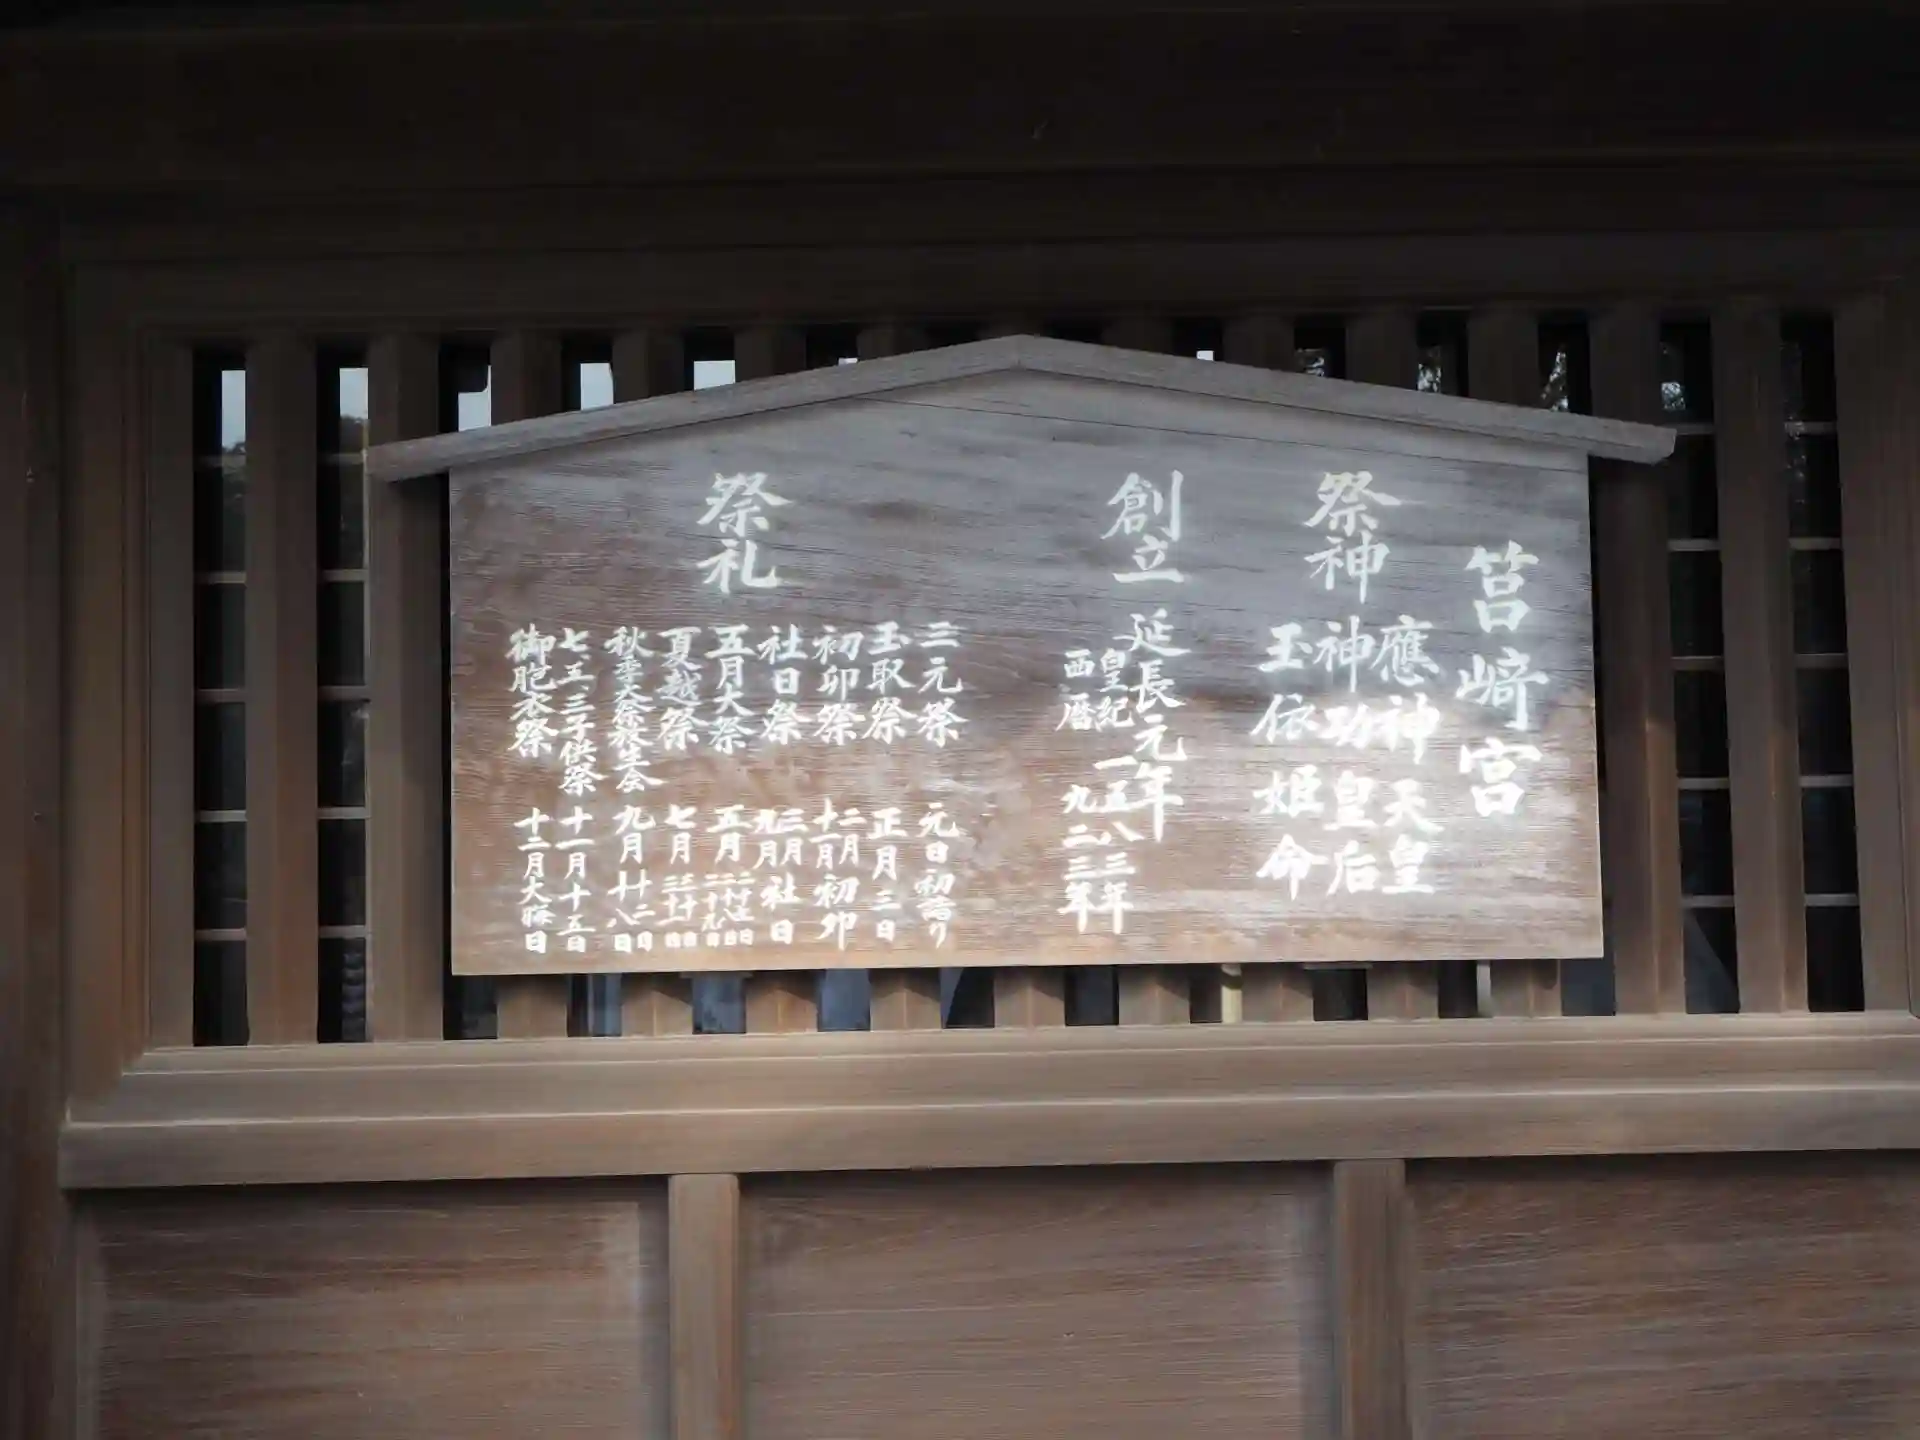 筥﨑宮
祭神
應神天皇
神功皇后
玉依姫命
創立
延長元年
皇紀 一五八三年
西暦 九二三年
祭礼
三元祭 元日初詣り
玉取祭 正月三日
初卯祭 二月十一月初卯
社日祭 三月九月社日
五月大祭 五月
夏越祭 七月
秋季大祭放生会 九月十二日十八日
七五三子供祭 十一月十五日
御胞衣祭 十二月大晦日